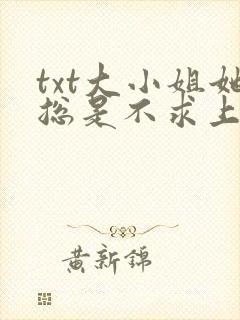 txt大小姐她
总是不求上
黄新锦